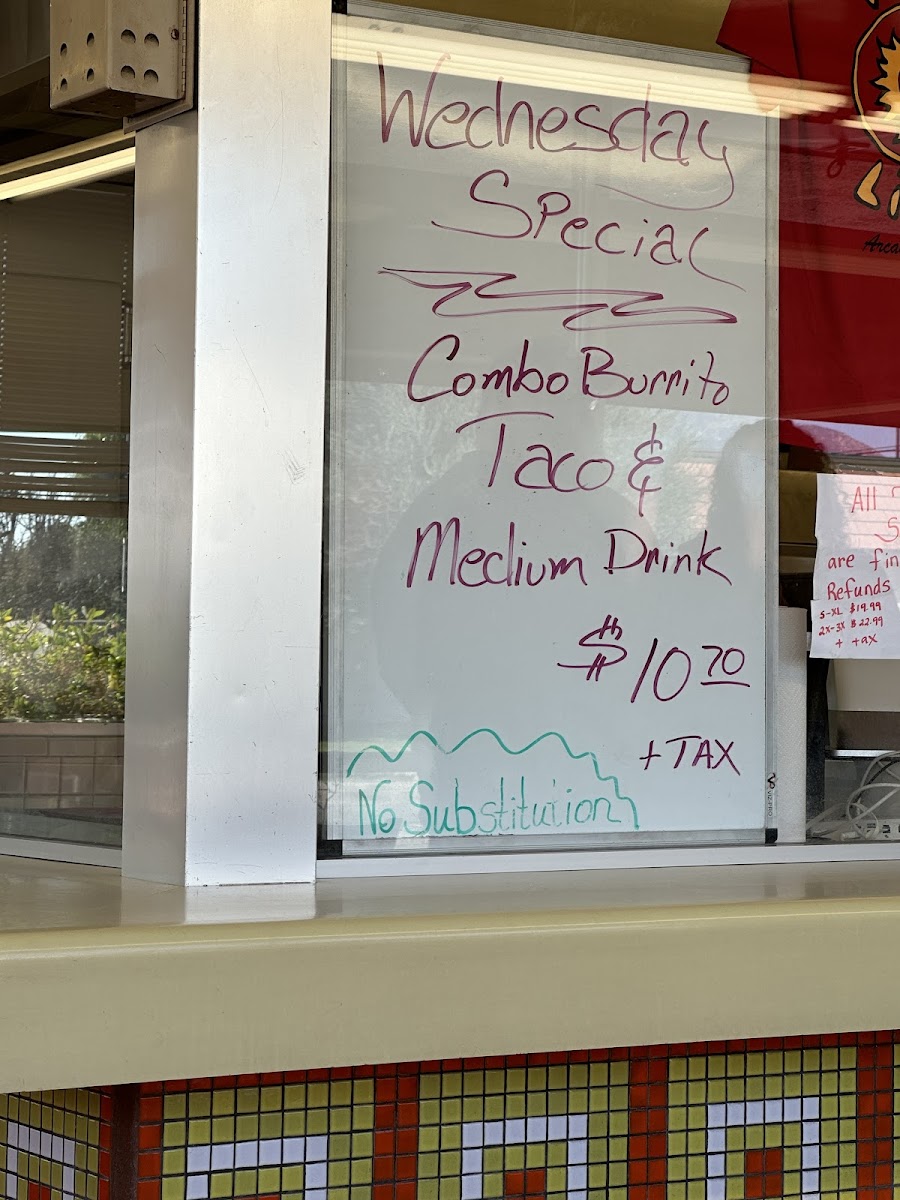 Wednesday
Special
Combo Burrito
Taco &
Medium Drink
$10.70
+ TAX
No Substitution
All
S
are fin
Refunds
S-XL $19.99
2X-3X $22.99
+ tax